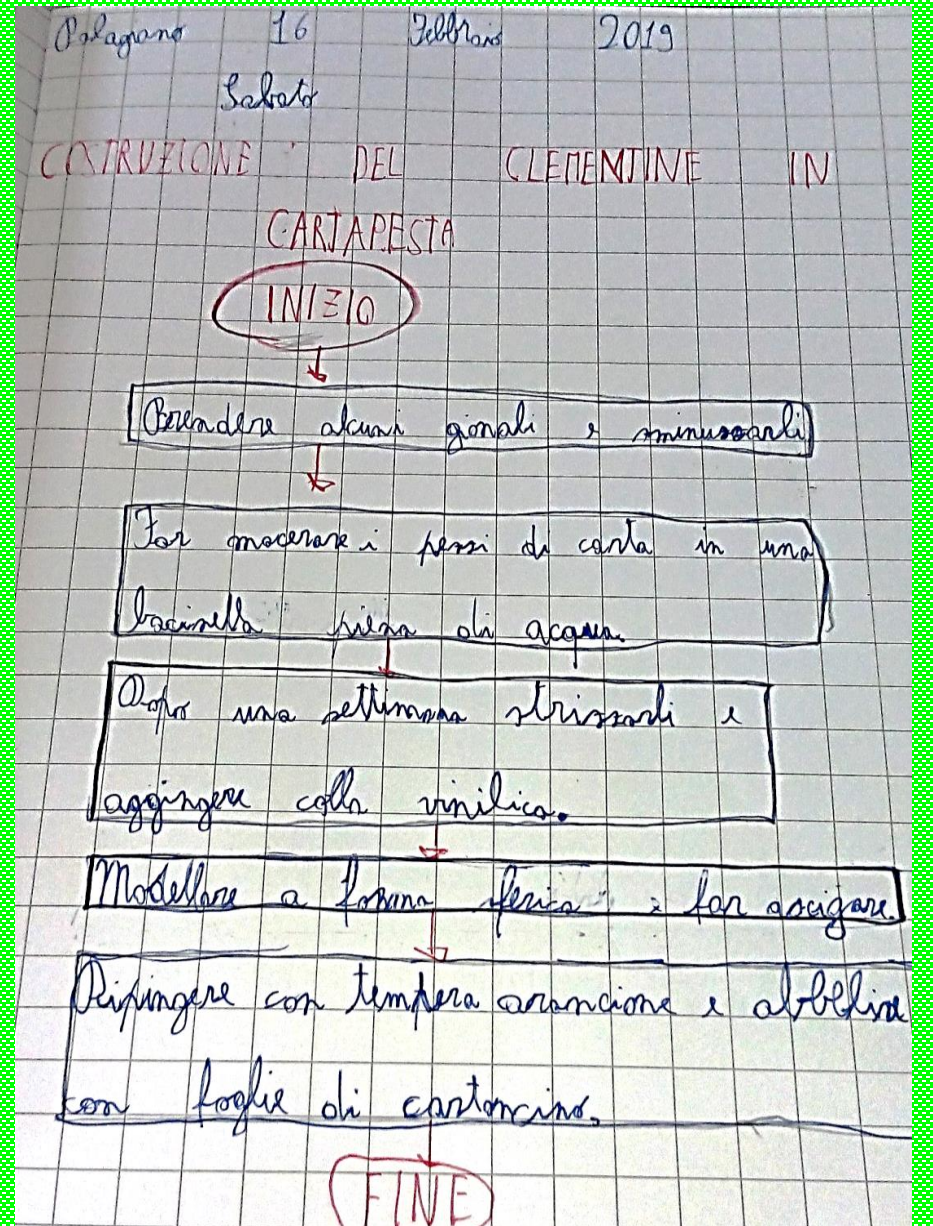 Palagiano 16 Febbraio 2019
Sabato
COSTRUZIONE DEL CLEMENTINE IN
CARTAPESTA
INIZIO
Prendere alcuni gionali e sminuzzarli
Far macerare i pezzi di carta in una
bacinella piena di acqua.
Dopo una settimana strizzarli e
aggingere colla vinilica.
Modellare a forma sferica e far ascigare.
Dipingere con tempera arancione e abbellire
con foglie di cartoncino.
FINE